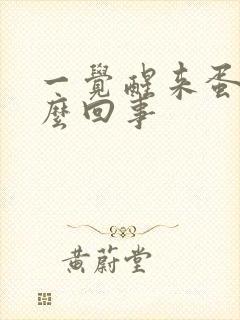 一覺醒来蛋
麼回事
黃蔚堂